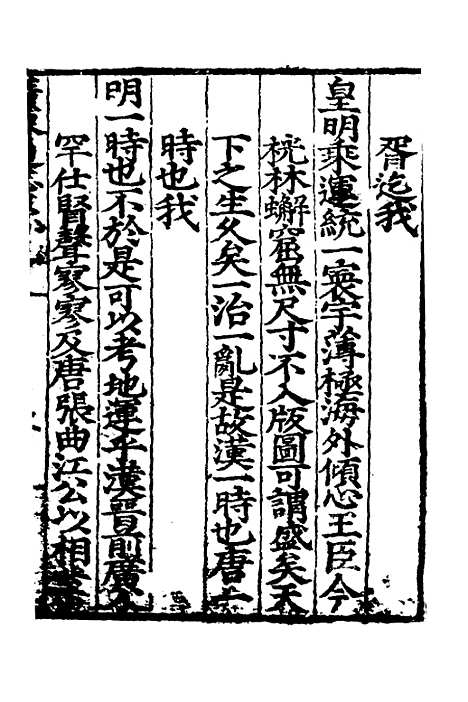 胥迄我
皇明乘運統一寰宇薄極海外傾心王臣今
桄林蠏窟無尺寸不入版圖可謂盛矣天
下之生久矣一治一亂是故漢一時也唐一
時也我
明一時也不於是可以考地運乎漢晉前廣
罕仕賢聲寥寥及唐張曲江公以相